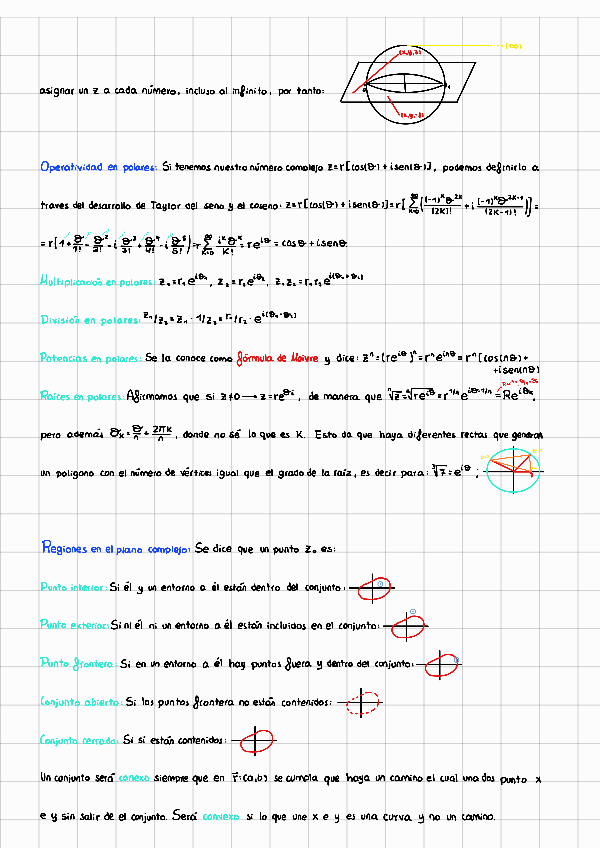 asignar un z a cada número, incluso al infinito, por tanto:
Operatividad en polares: Si tenemos nuestro número complejo z=r[cos(θ)+isen(θ)], podemos definirlo a
traves del desarrollo de Taylor del seno y el coseno: z=r[cos(θ)+isen(θ)]=r[∑((-1)^k θ^2k/(2k)! + i (-1)^k θ^2k+1/(2k+1)!)]=
=∑ i^k θ^k/k! = re^iθ = cosθ+isenθ
Multiplicación en polares: z₁=r₁e^iθ₁, z₂=r₂e^iθ₂, z₁z₂=r₁r₂e^i(θ₁+θ₂)
División en polares: z₁/z₂=z₁·1/z₂=r₁/r₂·e^i(θ₁-θ₂)
Potencias en polares: Se la conoce como fórmula de Moivre y dice: z^n=(re^iθ)^n=r^n e^inθ=r^n[cos(nθ)+
+isen(nθ)]
Raíces en polares: Afirmamos que si z≠0→z=re^θi, de manera que ⁿ√z=ⁿ√re^iθ=r^1/n e^iθ·1/n=Re^iθk,
pero además θk=θ/n+2πk/n, donde no sé lo que es K. Esto da que haya diferentes rectas que generan
un polígono con el número de vértices igual que el grado de la raíz, es decir para:
Regiones en el plano complejo: Se dice que un punto z₀ es:
Punto interior: Si él y un entorno a él están dentro del conjunto:
Punto exterior: Si ni él ni un entorno a él están incluidos en el conjunto:
Punto frontera: Si en un entorno a él hay puntos fuera y dentro del conjunto:
Conjunto abierto: Si los puntos frontera no están contenidos:
Conjunto cerrado: Si sí están contenidos:
Un conjunto será conexo siempre que en r:(a,b) se cumpla que haya un camino el cual una dos punto x
e y sin salir de el conjunto. Será convexo si lo que une x e y es una curva y no un camino.